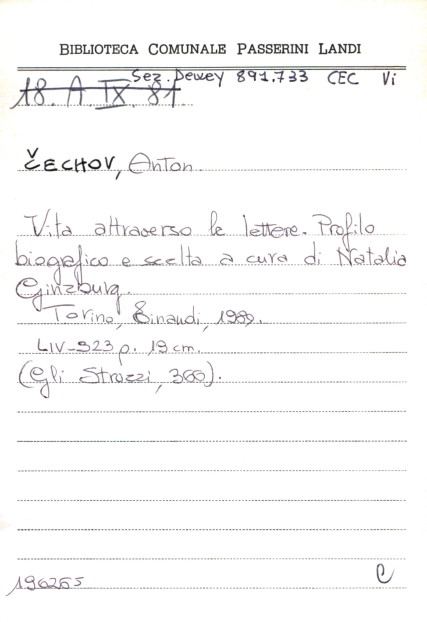 BIBLIOTECA COMUNALE PASSERINI LANDI
Sez. Dewey 891.733 CEC Vi
18. A. IX. 81
ČECHOV, Anton
Vita attraverso le lettere. Profilo
biografico e scelta a cura di Natalia
Ginzburg.
Torino, Einaudi, 1989.
LIV-323 p. 19 cm.
(Gli Struzzi, 360).
196265
C